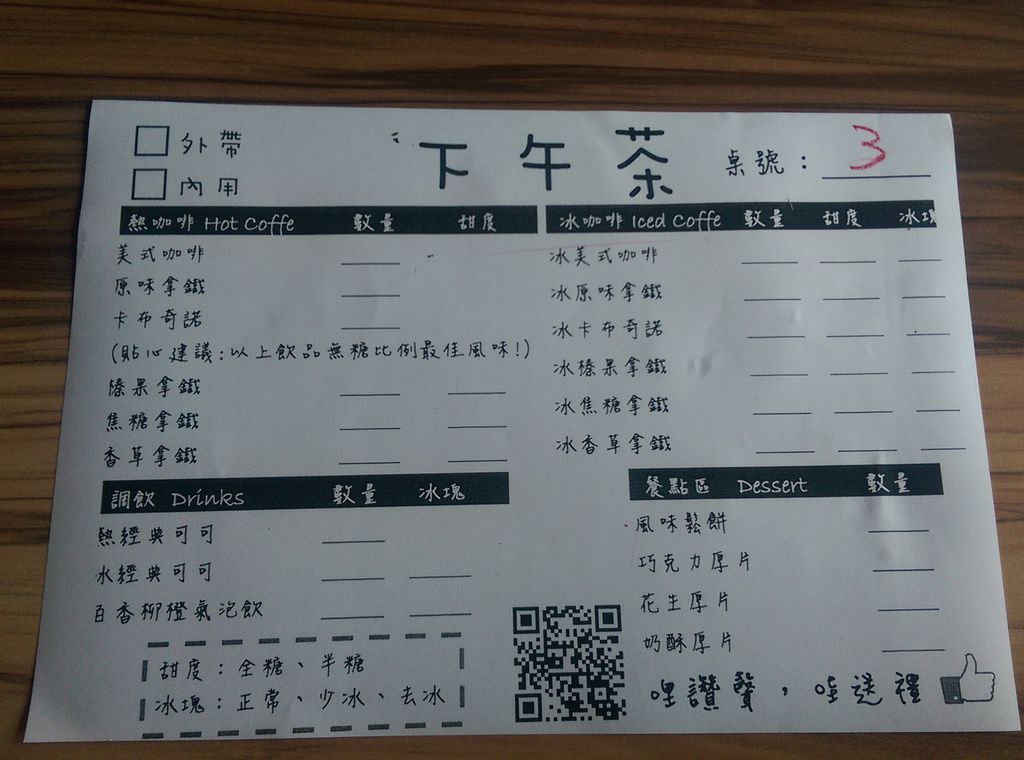 外帶
內用
下午茶
桌號：3
熱咖啡 Hot Coffe 數量 甜度
美式咖啡
原味拿鐵
卡布奇諾
(貼心建議:以上飲品無糖比例最佳風味!)
榛果拿鐵
焦糖拿鐵
香草拿鐵
冰咖啡 Iced Coffe 數量 甜度 冰塊
冰美式咖啡
冰原味拿鐵
冰卡布奇諾
冰榛果拿鐵
冰焦糖拿鐵
冰香草拿鐵
調飲 Drinks 數量 冰塊
熱經典可可
冰經典可可
百香柳橙氣泡飲
甜度：全糖、半糖
冰塊：正常、少冰、去冰
餐點區 Dessert 數量
風味鬆餅
巧克力厚片
花生厚片
奶酥厚片
哩讚聲，哇送禮